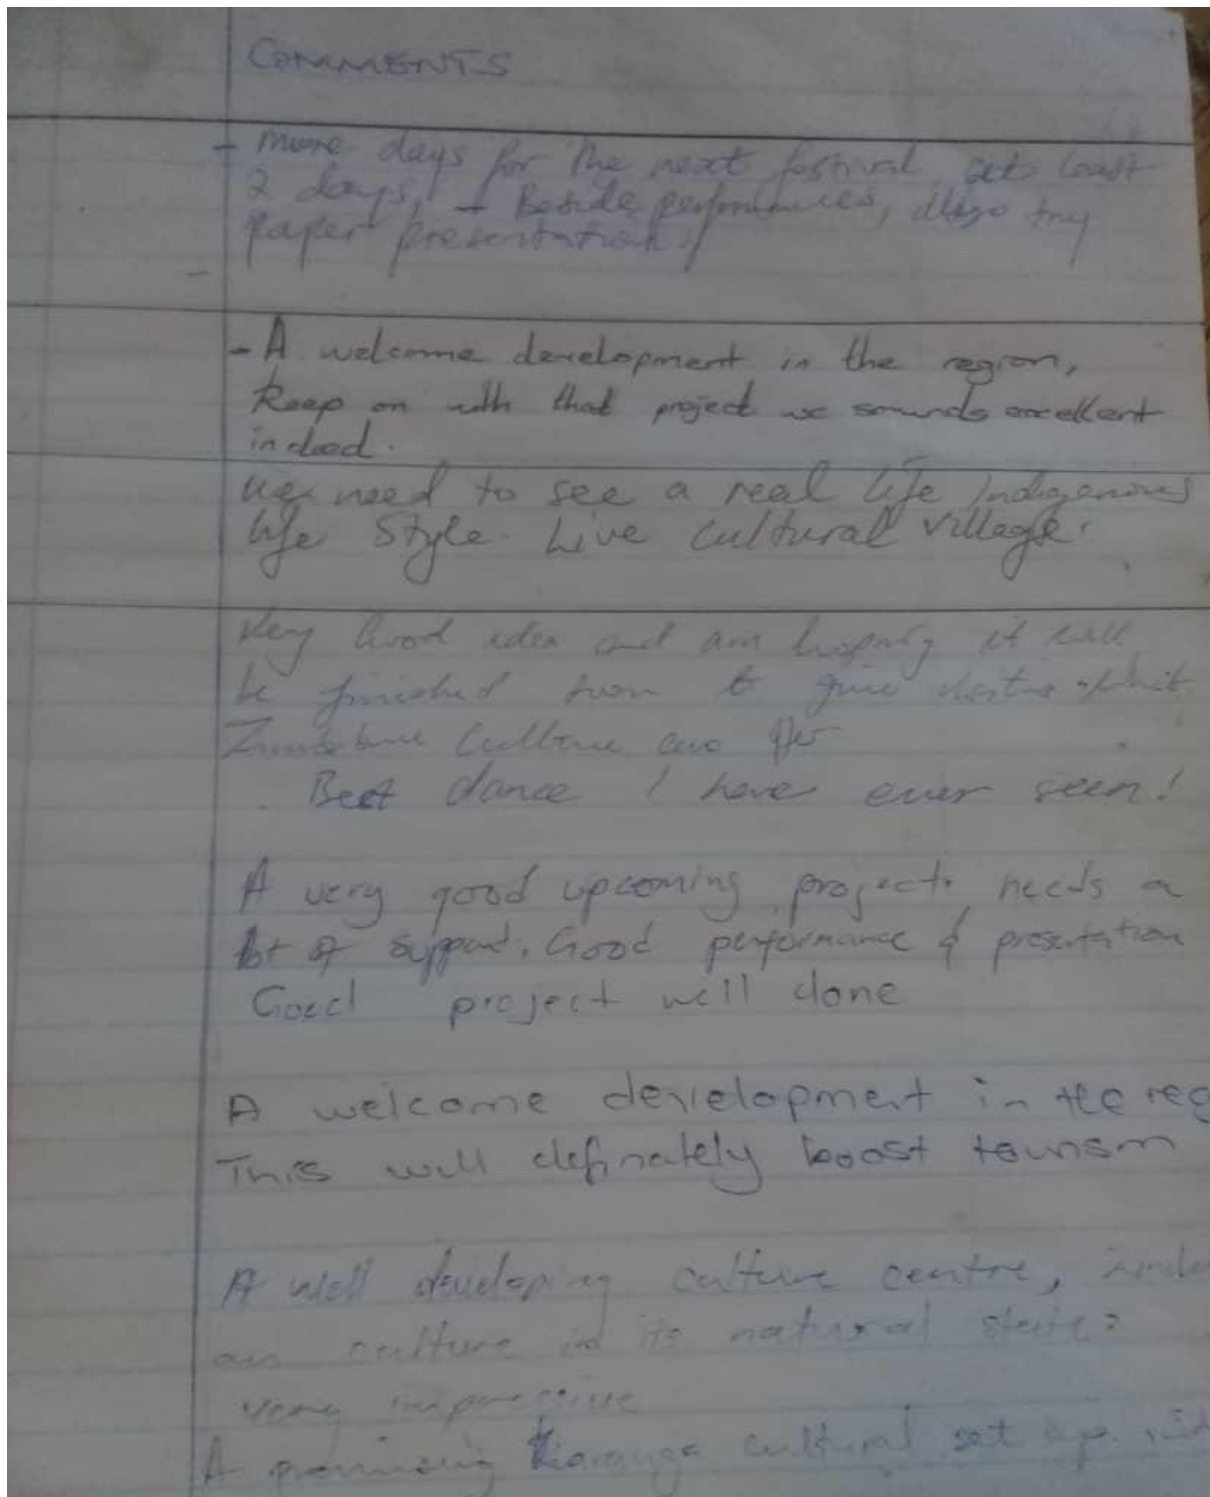 COMMENTS
- more days for the next festival at least
2 days, - Beside performances, also try
paper presentation.
- A welcome development in the region,
Keep on with that project we sounds excellent
indeed.
We need to see a real life Indigenous
life Style. Live Cultural Village.
Very Good idea and am hoping it will
be finished soon to give
Zimbabwe Culture can offer
Best dance I have ever seen!
A very good upcoming project. needs a
lot of support. Good performance & presentation
Good project well done
A welcome development in the reg
This will definately boost tourism
A well developing culture centre,
an culture in its natural state
very impressive
A promising Karanga cultural set up.